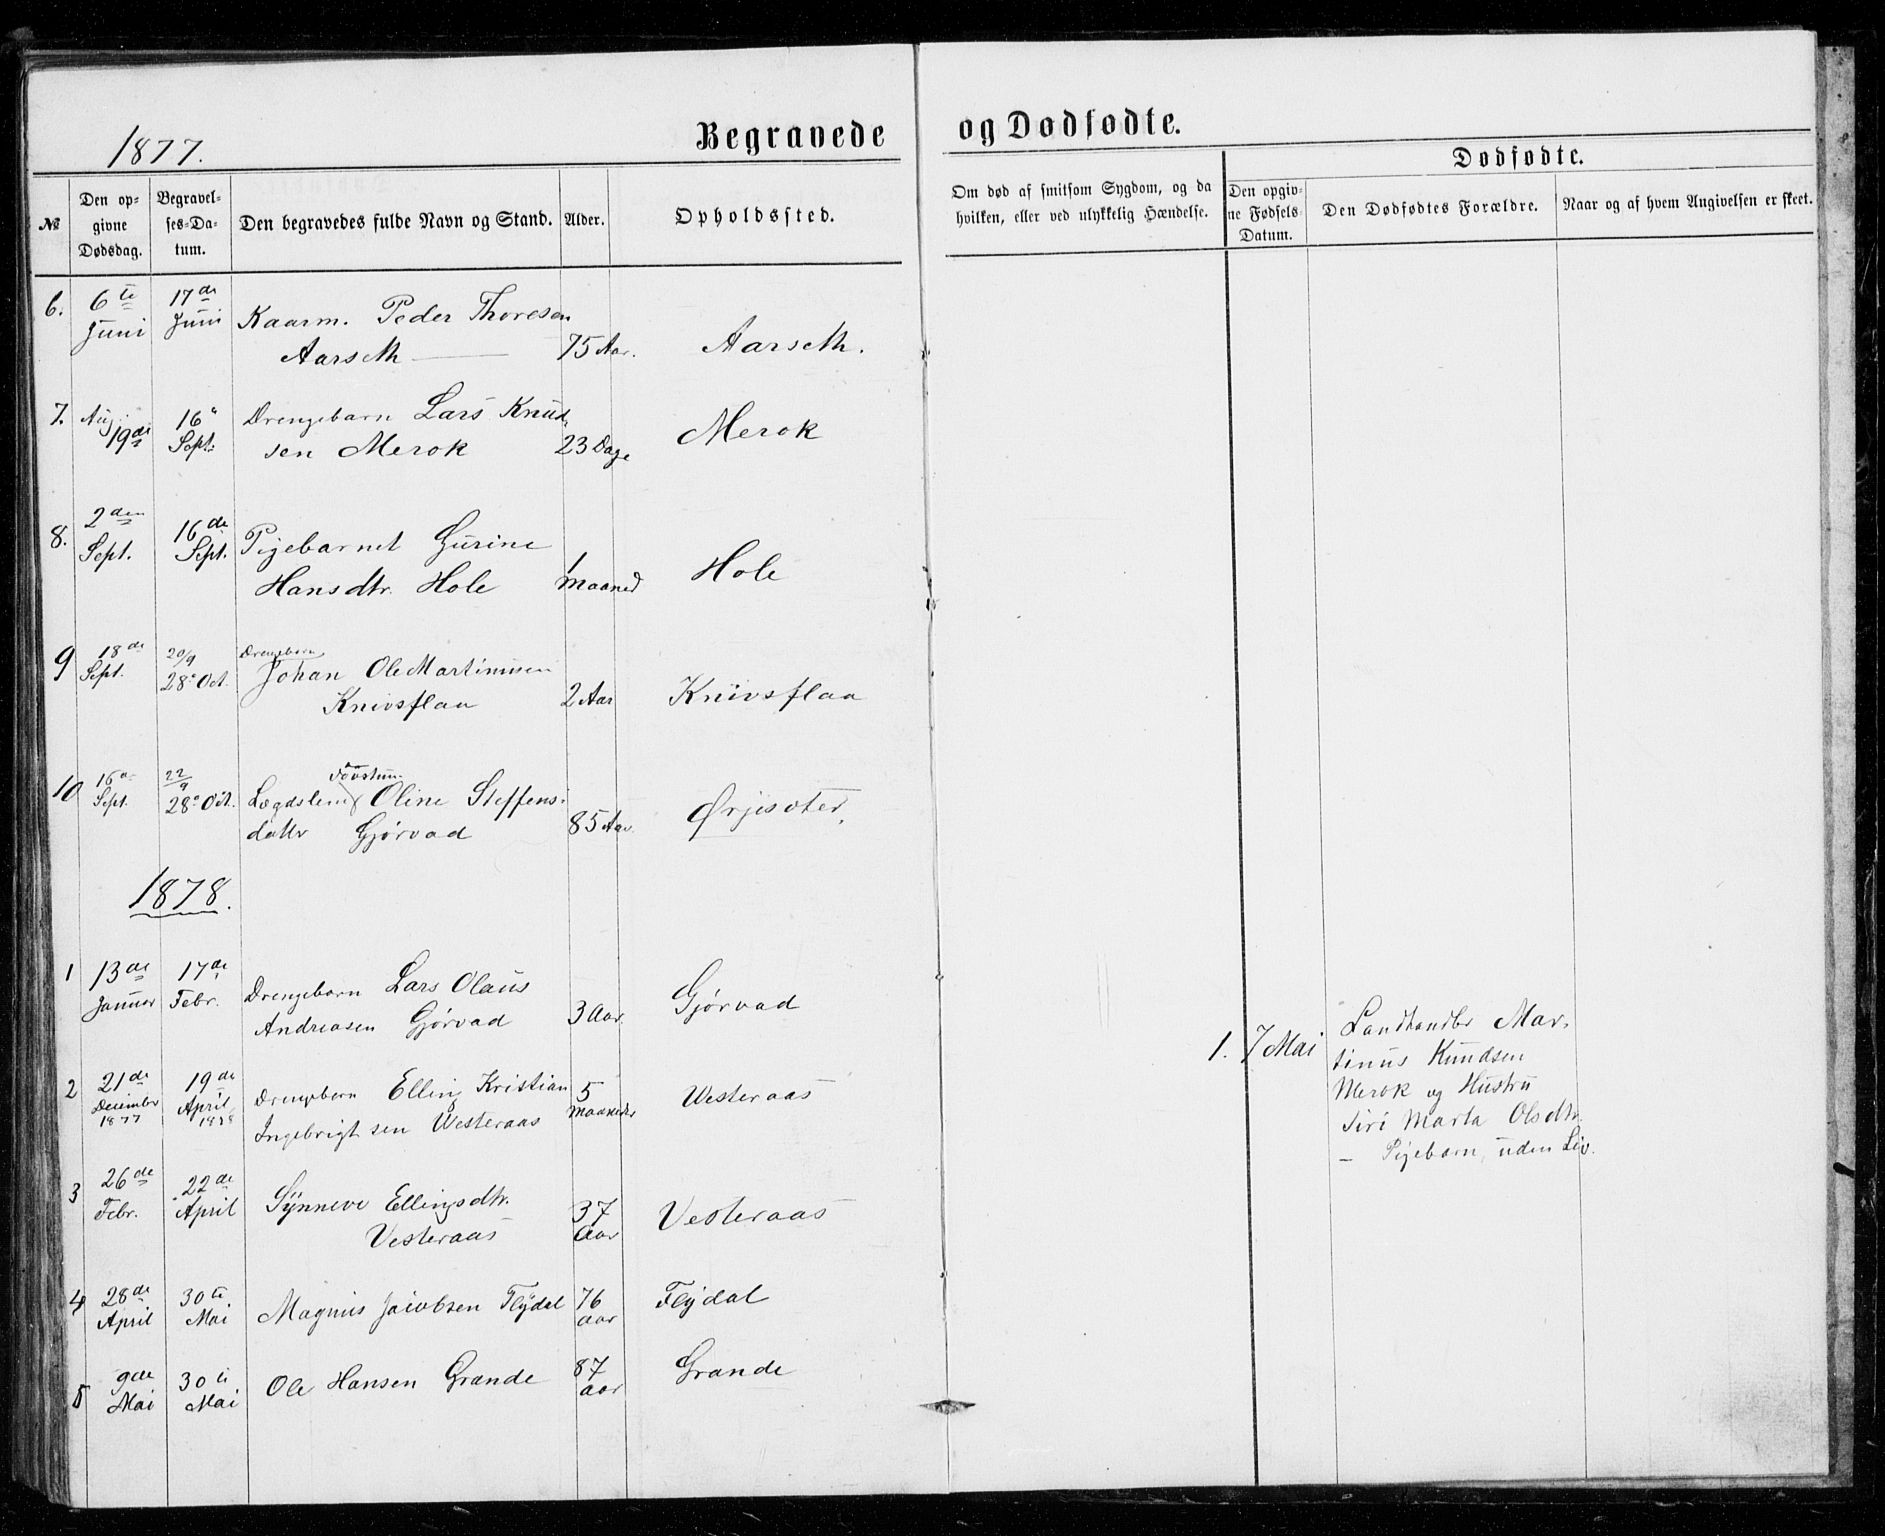 1877.
Begravede
og Dødfødte.
Dødfødte.
№
Den op-
givne
Dødsdag.
Begravel-
ses-Da-
tum.
Den begravedes fulde Navn og Stand.
Alder.
Opholdssted.
Om død af smitsom Sygdom, og da
hvilken, eller ved ulykkelig Hændelse.
Den opgiv-
ne Fødsels-
Datum.
Den Dødfødtes Forældre.
Naar og af hvem Angivelsen er skeet.
6. 6te 17de
Juni Juni Kaarm. Peder Thoresen
Aarseth 75 Aar. Aarseth.
7. Aug. 16 Drengebarn Lars Knud-
19de Sept. sen Merok 23 Dage Merok
8. 2den 16de Pigebarnet Gurine
Sept. Sept. Hansdtr. Hole 1 Maaned Hole
9 18de 20/9 Drengebarn
Sept. 28. Oct. Johan Ole Martinusen
Knivsflaa 2 Aar Knivsflaa
10 16 22/9
Sept. 28. Oct. Lægdslem Oline Steffens-
datter Gjørvad 85 Aar Ørjesæter.
1878.
1 13de 17de Drengebarn Lars Olaus
Januar Febr. Andreasen Gjørvad 3 Aar Gjørvad
2 21de 19de Drengebarn Elling Kristian 5
December April Ingebrigtsen Westeraas Maaneder Westeraas
1877 1878
3 26de 22de Synneve Ellingsdtr. 37
Febr. April Vesteraas Aar Vesteraas
4 28de 30te Magnus Jacobsen Flydal 76 Flydal
April Mai Aar
5 9de 30te Ole Hansen Grande 87 Grande
Mai Mai Aar
1. 7 Mai Landhandler Mar-
tinus Knudsen
Merok og Hustru
Siri Marta Olsdtr.
– Pigebarn, uden Liv.